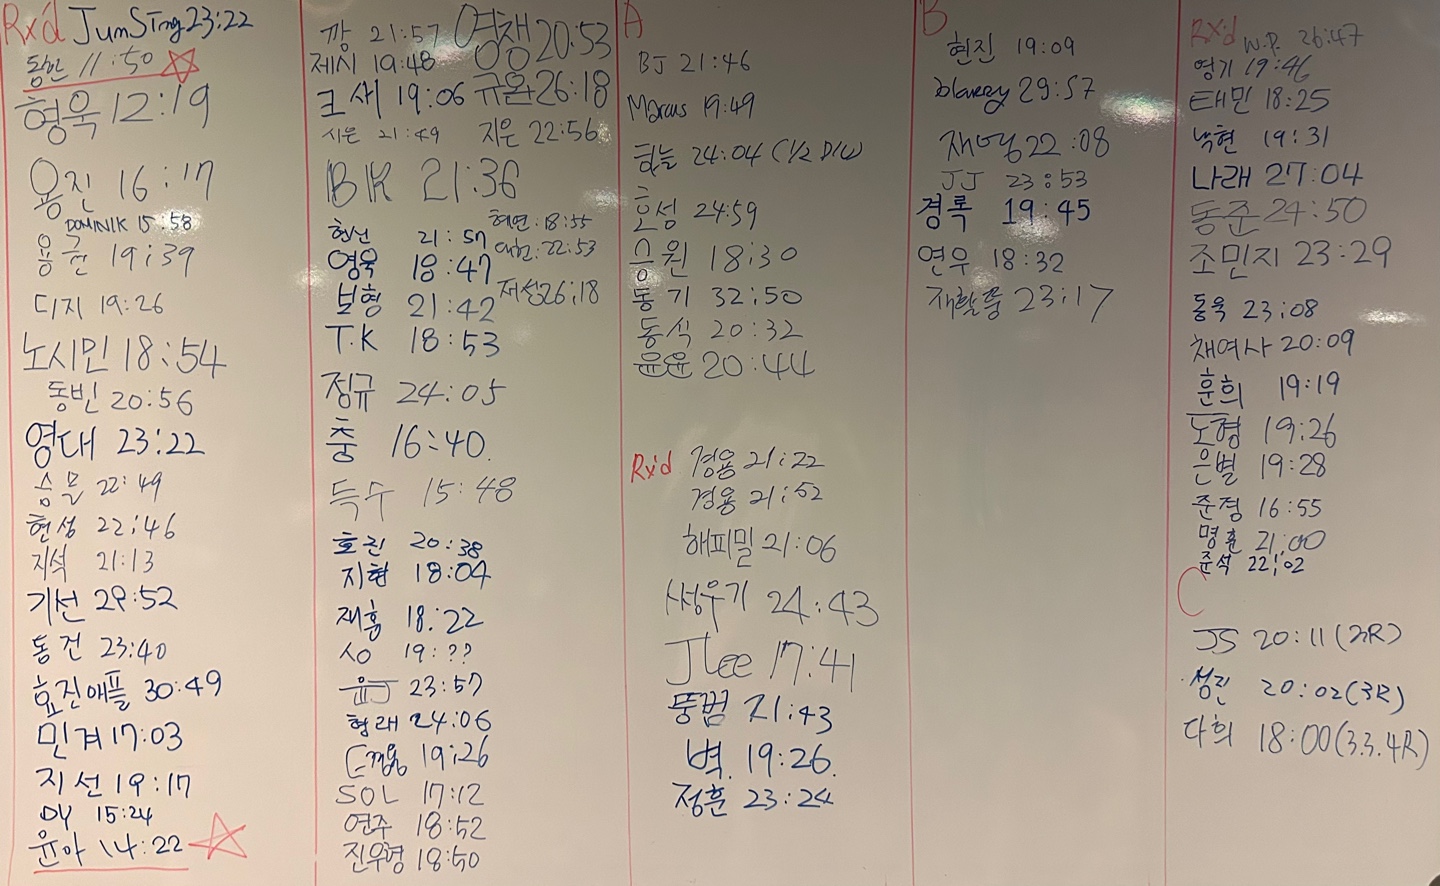 Rx'd JunSTng 23:22
동한 11:50
형욱 12:19
용진 16:17
DOMINIK 15:58
용균 19:39
디지 19:26
노시민 18:54
동빈 20:56
영대 23:22
승물 22:49
현성 22:46
지석 21:13
기선 29:52
동건 23:40
효진애플 30:49
민겨 17:03
지선 19:17
DY 15:24
윤아 14:22
깡 21:57 영재 20:53
제시 19:48
크새 19:06 규완 26:18
시온 21:49 지은 22:56
BK 21:36
현선 21:57 혜연:18:55
영욱 18:47 대헌:22:53
보형 21:42 재성 26:18
T.K 18:53
정규 24:05
충 16:40
득수 15:48
호진 20:38
지현 18:04
재홍 18:22
시о 19:??
윤J 23:57
형래 24:06
19:26
SOL 17:12
연주 18:52
진우형 18:50
A
BJ 21:46
Marcus 19:49
하늘 24:04 (1/2 D/U)
호성 24:59
승원 18:30
동기 32:50
동식 20:32
윤윤 20:44
Rx'd 경용 21:22
경용 21:52
해피밀 21:06
썽우기 24:43
JLee 17:41
뚱범 21:43
벽 19:26
정훈 23:24
B
현진 19:09
29:57
재영 22:08
JJ 23:53
경록 19:45
연우 18:32
재활중 23:17
Rx'd W.P. 26:47
영기 19:46
태민 18:25
낙현 19:31
나래 27:04
동준 24:50
조민지 23:29
동욱 23:08
채여사 20:09
훈희 19:19
노형 19:26
은별 19:28
준정 16:55
명훈 21:00
준석 22:02
C
JS 20:11 (2R)
성진 20:02 (3R)
다희 18:00 (3.3.4R)